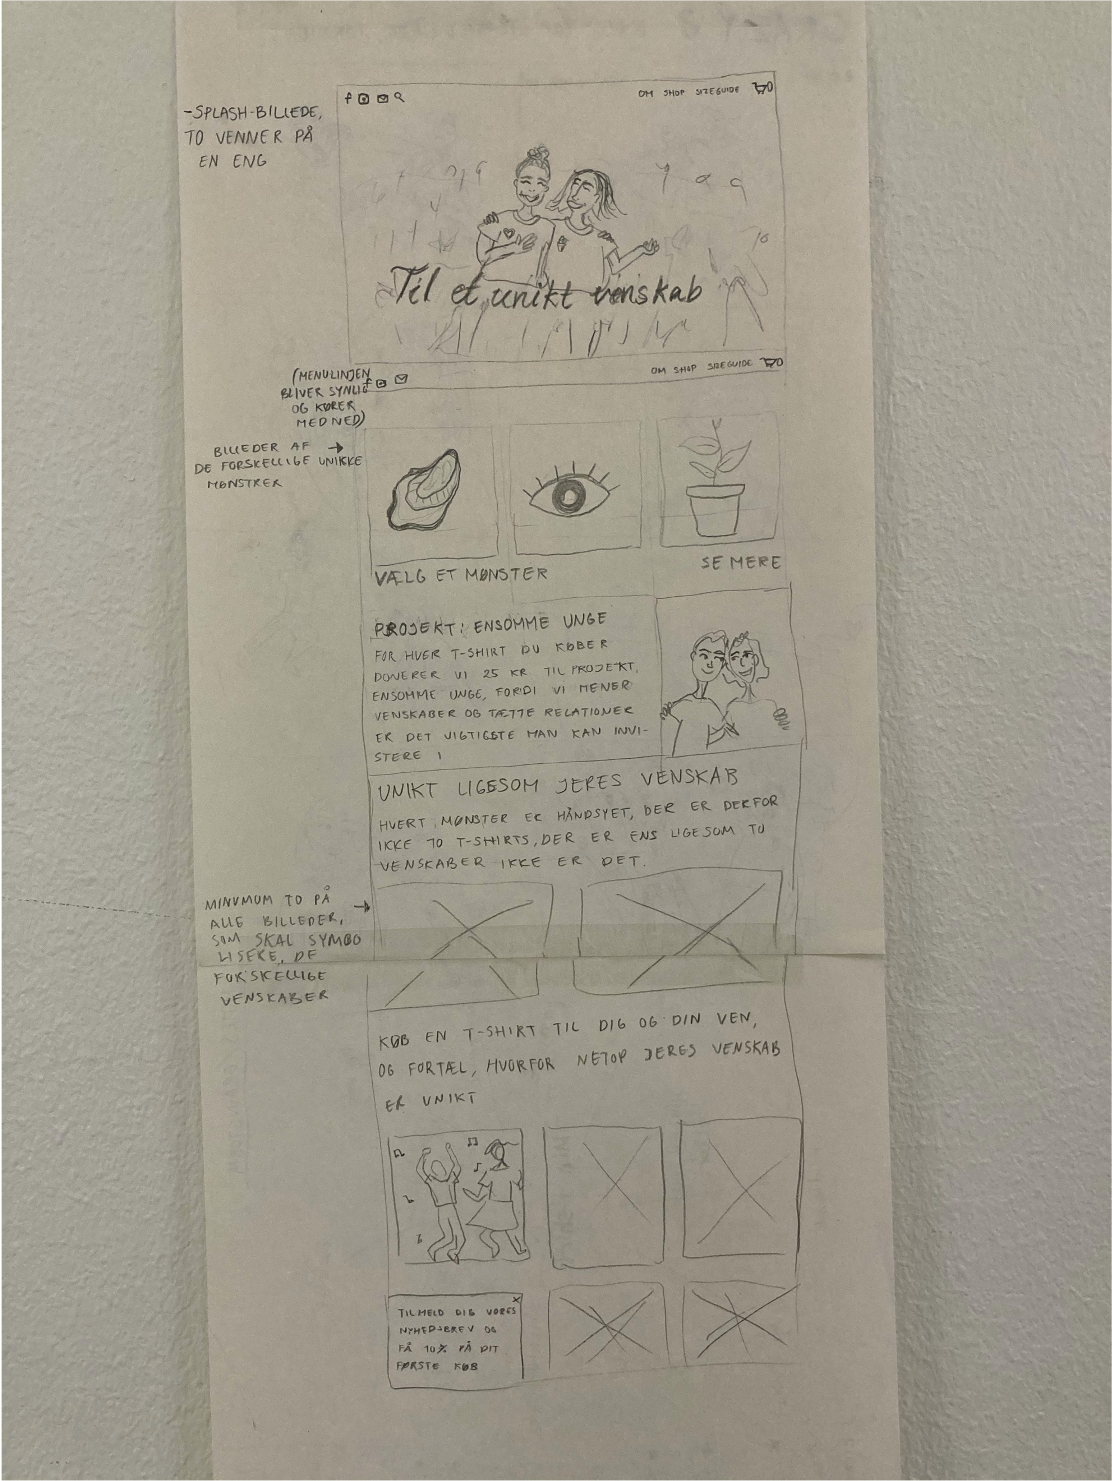 -SPLASH-BILLEDE,
TO VENNER PÅ
EN ENG
OM SHOP SIZEGUIDE
Til et unikt venskab
(MENULINJEN
BLIVER SYNLIG
OG KØRER
MED NED)
OM SHOP SIZEGUIDE
BILLEDER AF →
DE FORSKELLIGE UNIKKE
MØNSTRER
VÆLG ET MØNSTER
SE MERE
PROJEKT: ENSOMME UNGE
FOR HVER T-SHIRT DU KØBER
DONERER VI 25 KR TIL PROJEKT,
ENSOMME UNGE, FORDI VI MENER
VENSKABER OG TÆTTE RELATIONER
ER DET VIGTIGSTE MAN KAN INVI-
STERE I
UNIKT LIGESOM JERES VENSKAB
HVERT MØNSTER ER HÅNDSYET, DER ER DERFOR
IKKE TO T-SHIRTS, DER ER ENS LIGESOM TO
VENSKABER IKKE ER DET.
MINUMUM TO PÅ →
ALLE BILLEDER,
SOM SKAL SYMBO
LISERE, DE
FORSKELLIGE
VENSKABER
KØB EN T-SHIRT TIL DIG OG DIN VEN,
OG FORTÆL, HVORFOR NETOP JERES VENSKAB
ER UNIKT
TILMELD DIG VORES X
NYHEDSBREV OG
FÅ 10% PÅ DIT
FØRSTE KØB